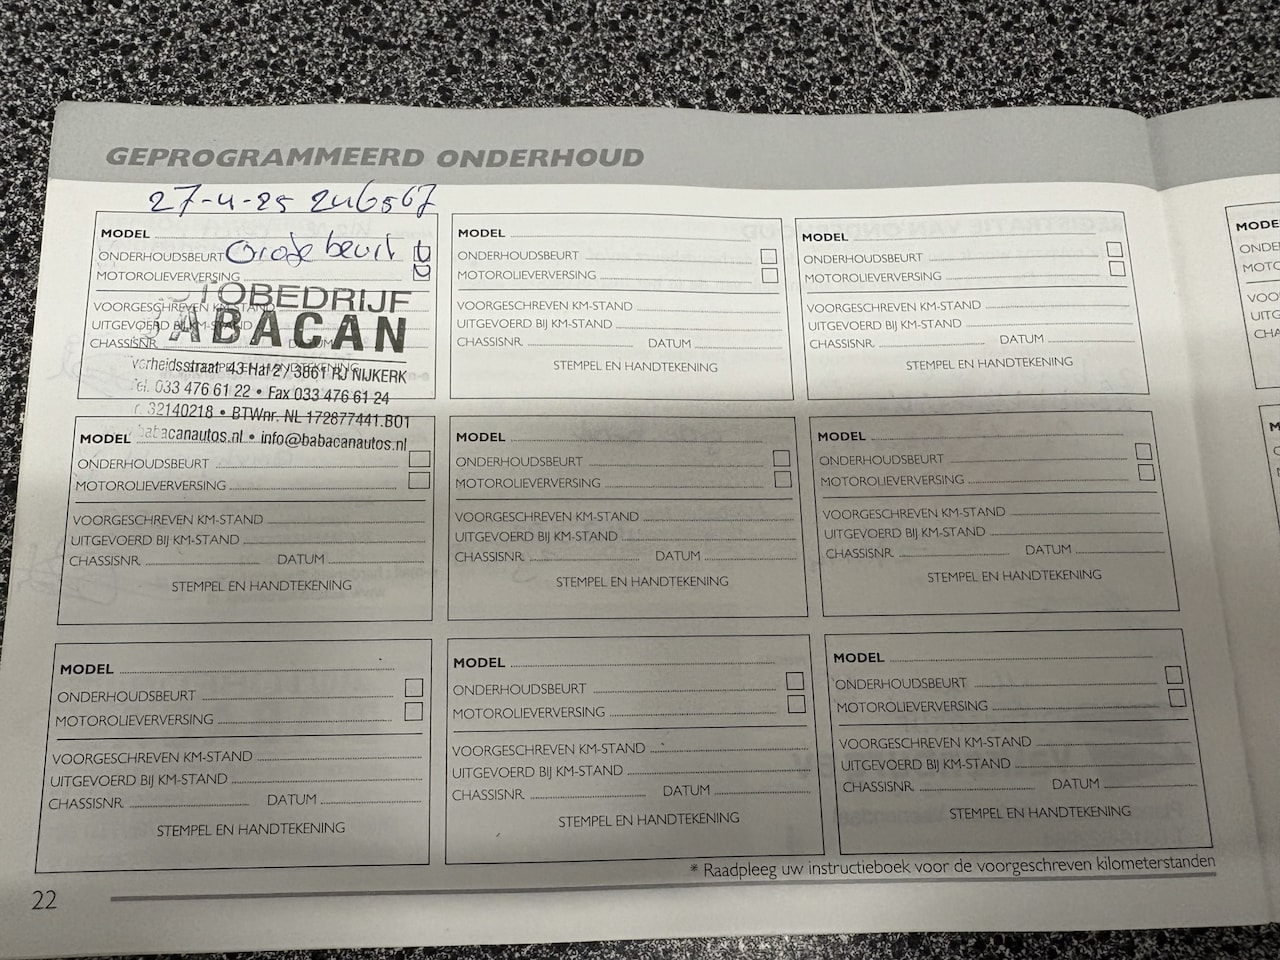 GEPROGRAMMEERD ONDERHOUD
27-4-25 246567
MODEL
ONDERHOUDSBEURT Grote beurt
MOTOROLIEVERVERSING
VOORGESCHREVEN KM-STAND
UITGEVOERD BIJ KM-STAND
CHASSISNR. DATUM
STEMPEL EN HANDTEKENING
TOBEDRIJF
ABACAN
verheidsstraat 43 Hal 2, 3861 RJ NIJKERK
tel. 033 476 61 22 • Fax 033 476 61 24
32140218 • BTWnr. NL 172877441.B01
babacanautos.nl • info@babacanautos.nl
MODEL
ONDERHOUDSBEURT
MOTOROLIEVERVERSING
VOORGESCHREVEN KM-STAND
UITGEVOERD BIJ KM-STAND
CHASSISNR. DATUM
STEMPEL EN HANDTEKENING
MODEL
ONDERHOUDSBEURT
MOTOROLIEVERVERSING
VOORGESCHREVEN KM-STAND
UITGEVOERD BIJ KM-STAND
CHASSISNR. DATUM
STEMPEL EN HANDTEKENING
MODEL
ONDERHOUDSBEURT
MOTOROLIEVERVERSING
VOORGESCHREVEN KM-STAND
UITGEVOERD BIJ KM-STAND
CHASSISNR. DATUM
STEMPEL EN HANDTEKENING
MODEL
ONDERHOUDSBEURT
MOTOROLIEVERVERSING
VOORGESCHREVEN KM-STAND
UITGEVOERD BIJ KM-STAND
CHASSISNR. DATUM
STEMPEL EN HANDTEKENING
MODEL
ONDERHOUDSBEURT
MOTOROLIEVERVERSING
VOORGESCHREVEN KM-STAND
UITGEVOERD BIJ KM-STAND
CHASSISNR. DATUM
STEMPEL EN HANDTEKENING
MODEL
ONDERHOUDSBEURT
MOTOROLIEVERVERSING
VOORGESCHREVEN KM-STAND
UITGEVOERD BIJ KM-STAND
CHASSISNR. DATUM
STEMPEL EN HANDTEKENING
MODEL
ONDERHOUDSBEURT
MOTOROLIEVERVERSING
VOORGESCHREVEN KM-STAND
UITGEVOERD BIJ KM-STAND
CHASSISNR. DATUM
STEMPEL EN HANDTEKENING
MODEL
ONDERHOUDSBEURT
MOTOROLIEVERVERSING
VOORGESCHREVEN KM-STAND
UITGEVOERD BIJ KM-STAND
CHASSISNR. DATUM
STEMPEL EN HANDTEKENING
* Raadpleeg uw instructieboek voor de voorgeschreven kilometerstanden
22